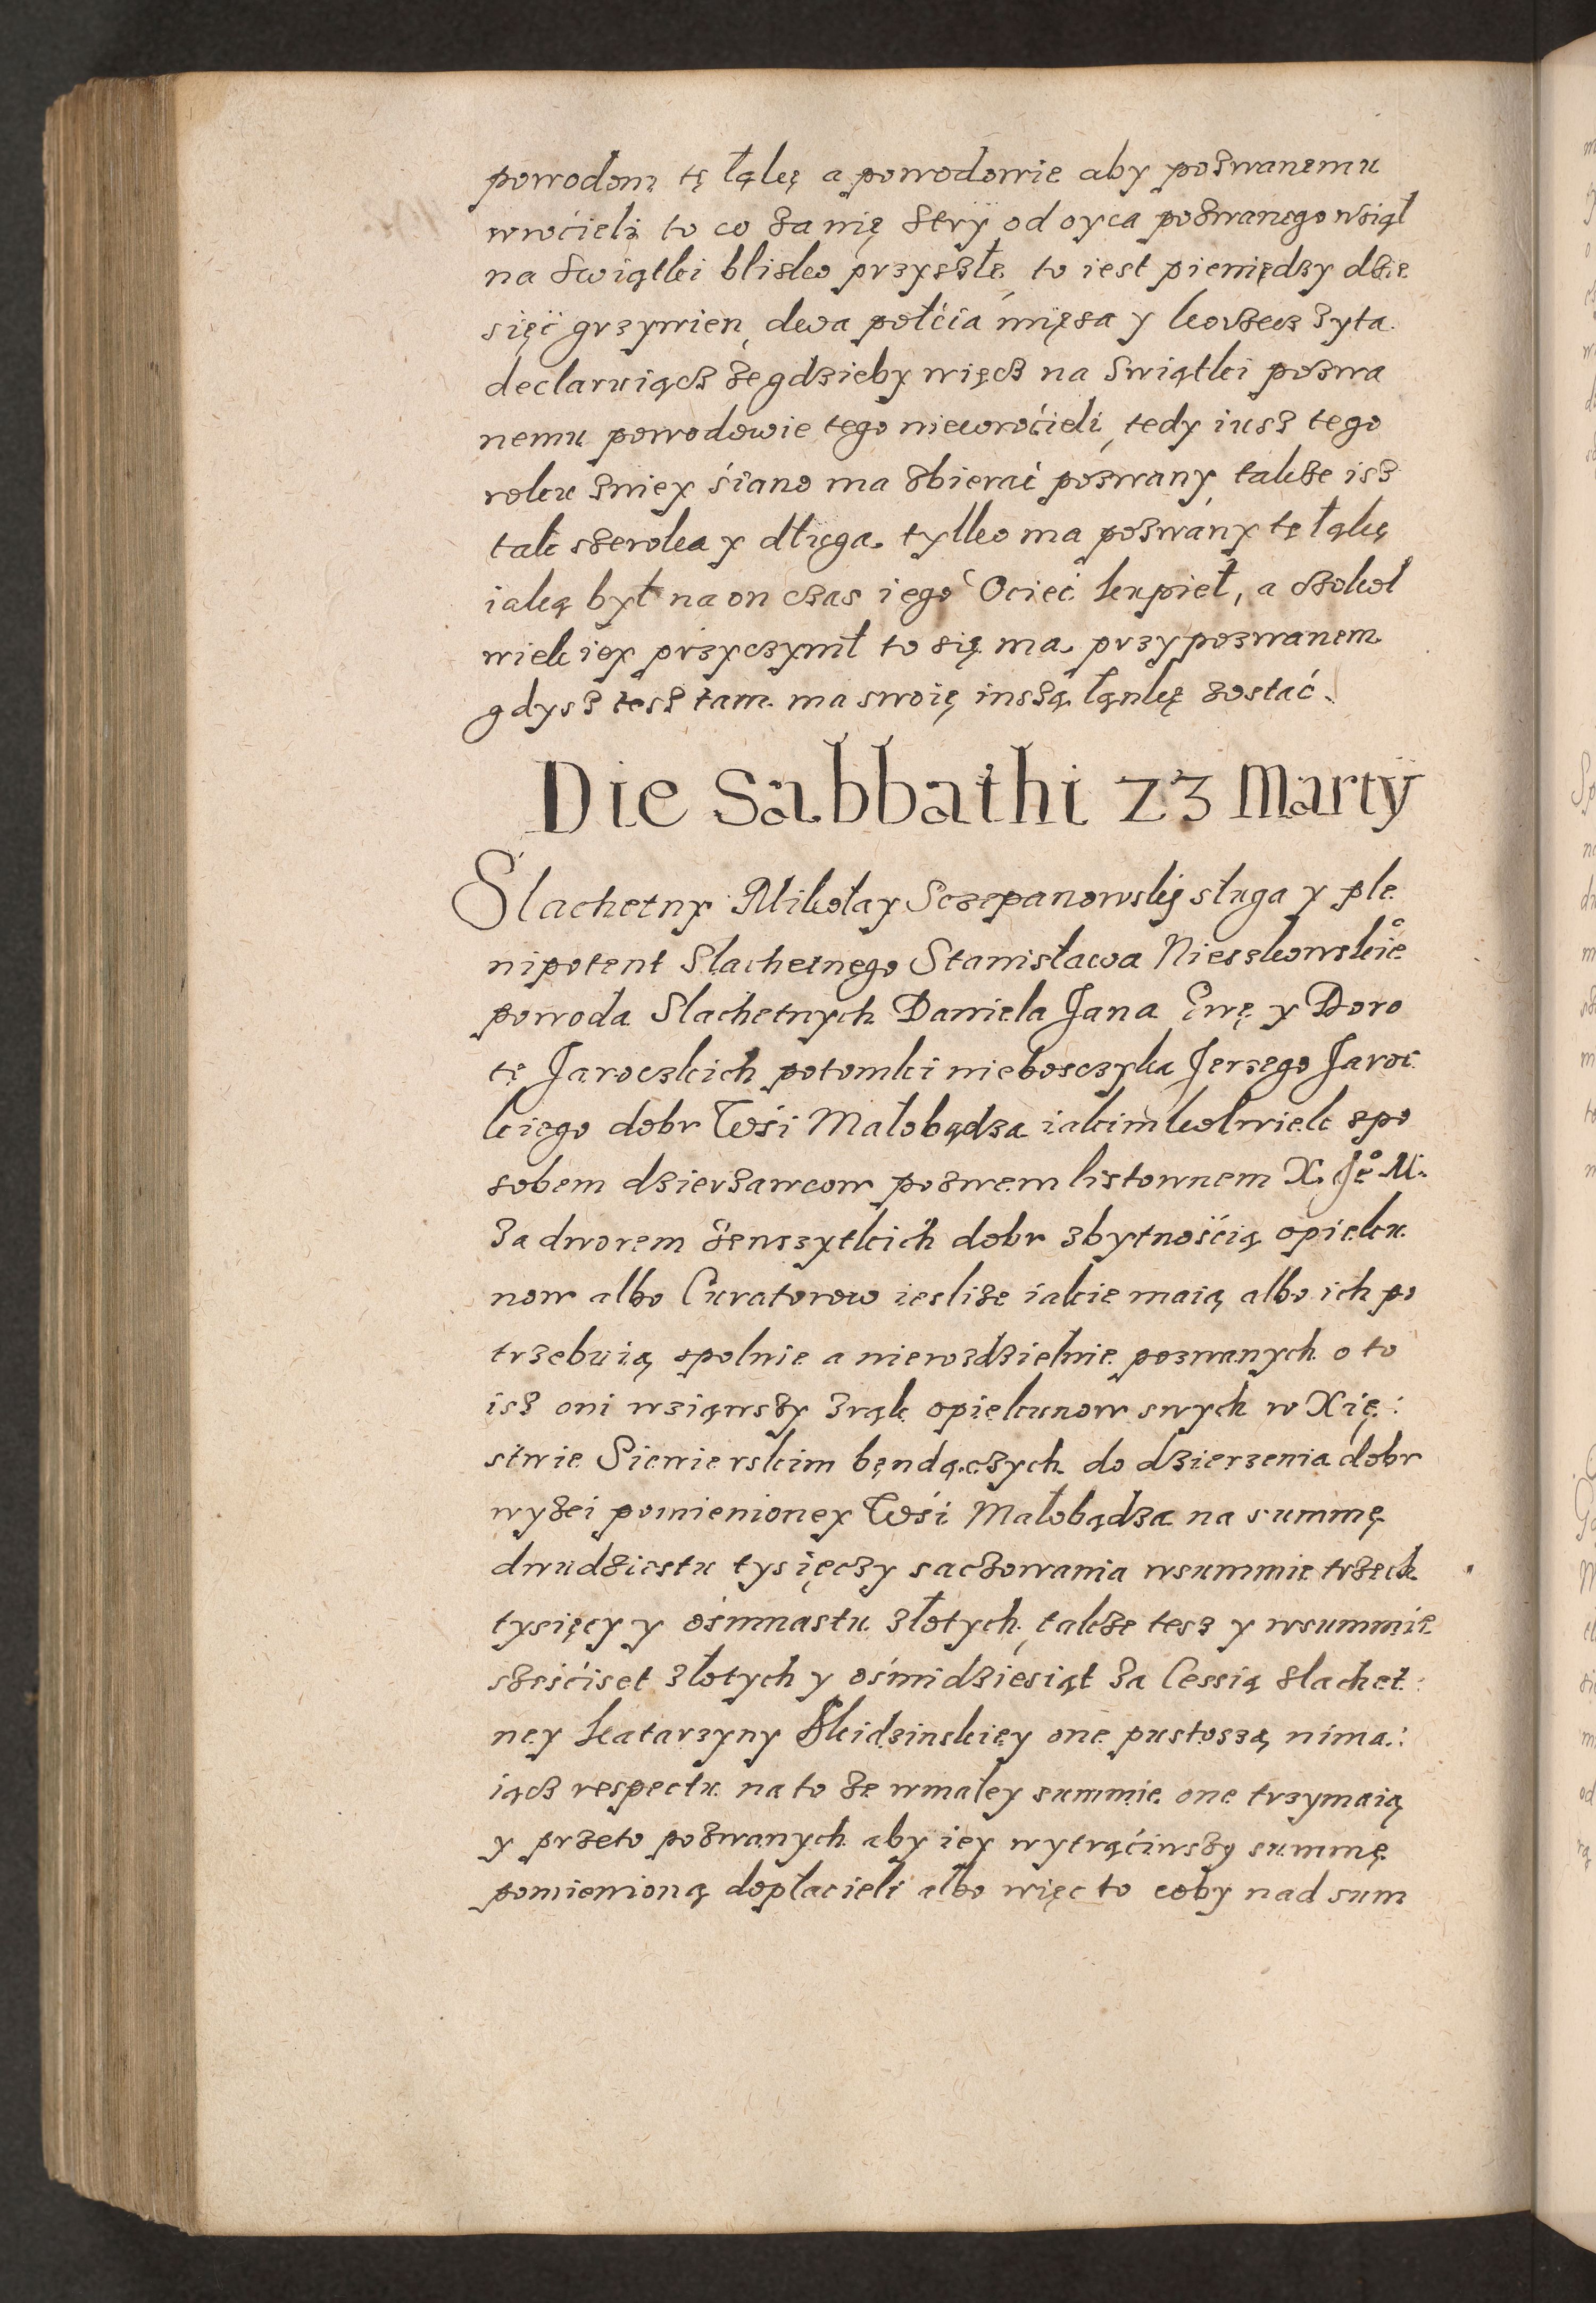 powodom tę łąkę a powodowie aby pozwanemu
wrócieli to co za nię Stryÿ od oyca pozwanego wziął
na Swiątki blisko przyszłe, to iest pieniędzy dzie
sięć grzywien, dwa połcia mięsa y korzecz żyta.
declaruiącz że gdzieby więcz na Swiątki pozwa
nemu powodowie tego niewrócieli, tedy iusz tego
roku zniey śiano ma zbierać pozwany, także isz
tak szeroka y długa tylko ma pozwany tę łąkę
iaką był na on czas iego Ociec kupieł, a czokol
wiek iey przyczynił to się ma przy pozwanem
gdysz tesz tam ma swoię inszą łąnkę zostać.
Die Sabbathi 23 Martÿ
Slachetny Mikołay Sczepanowskÿ sługa y ple
nipotent Slachetnego Stanisława Nieszkowskie°
powoda Slachetnych Daniela Jana Ewę y Doro
tę Jaroczkich potomki niebosczyka Jerzego Jaroc
kiego dobr Wśi Małobądza iakimkolwiek spo
sobem dzierzawcow pozwem listownem X. Je° M:
Za dworem zewszytkich dobr zbytnośćią opieku
now albo Curatorow iesliże iakie maią albo ich po
trzebuią spolnie a nierozdzielnie pozwanych o to
isz oni wziąwszy zrąk opiekunow swych w Xię:
stwie Siewierskim będączych do dzierzenia dobr
wyżei pomienioney Wśi Małobądza na summę
dwudziestu tysięczy saczowania wsummie trzech
tysięcy y ośmnastu złotych, także tesz y wsummie
sześćiset złotych y ośmidzieśiąt Za Cessią slachet:
ney Katarzyny Skidzinskiey one pustoszą nima:
iącz respectu na to że wmałey summie one trzymaią
y przeto pozwanych aby iey wytrąćiwszy summę
pomienioną dopłacieli albo więc to coby nad sum